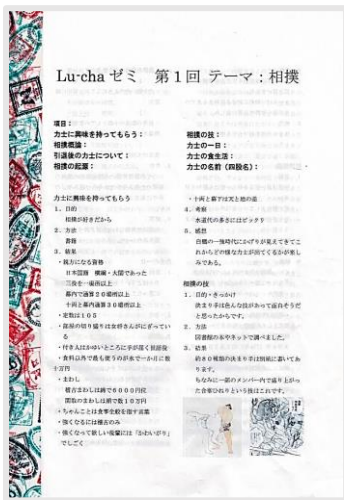 Lu-cha ゼミ 第1回 テーマ：相撲
項目：
力士に興味を持ってもらう：
相撲概論：
引退後の力士について：
相撲の起源：
相撲の技：
力士の一日：
力士の食生活：
力士の名前（四股名）：
力士に興味を持ってもらう
1. 目的
相撲が好きだから
2. 方法
書籍
3. 結果
・親方になる資格
日本国籍 横綱・大関であった
三役を一場所以上
幕内で通算20場所以上
十両と幕内通算30場所以上
・定数は105
・部屋の切り盛りは女将さんがにぎってい
る
・付き人はかゆいところに手が届く世話役
・食料以外で最も使うのが水で一か月に数
十万円
・まわし
稽古まわしは綿で6000円代
関取のまわしは絹で数10万円
・ちゃんことは食事全般を指す言葉
・強くなるには稽古のみ
・強くなって欲しい後輩には「かわいがり」
でしごく
・十両と幕下は天と地の差
4. 考察
水道代の多さにはビックリ
5. 感想
白鵬の一強時代にかげりが見えてきてこ
れからどの様な力士が出てくるかが楽し
みである。
相撲の技
1. 目的・きっかけ
決まり手は色んな技があって面白そうだ
と思ったからです。
2. 方法
図書館の本やネットで調べました。
3. 結果
約80種類の決まり手は別紙に書いてあ
ります。
ちなみに一部のメンバー内で盛り上がっ
た合掌ひねりという技はこれです。